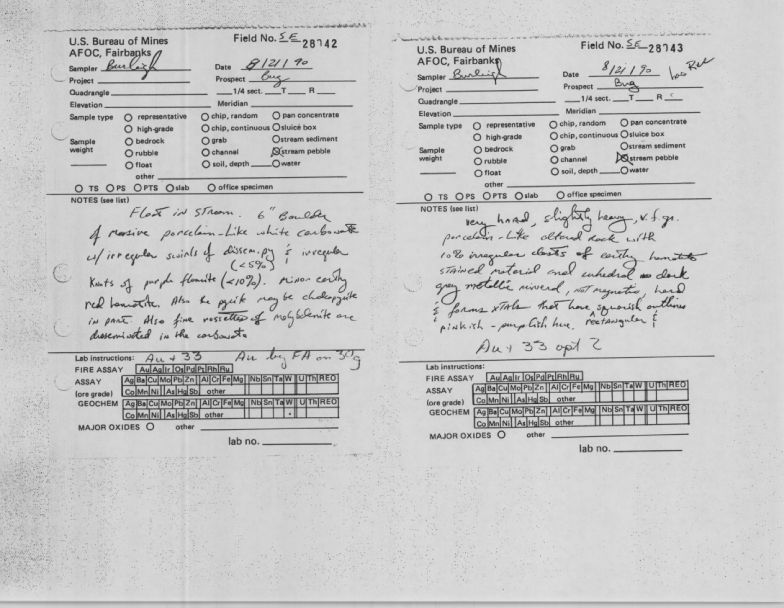 U.S. Bureau of Mines
AFOC, Fairbanks
Field No. SE 28742
Sampler Burleigh
Date 8/21/90
Project
Prospect Bug
Quadrangle
1/4 sect. T R
Elevation
Meridian
Sample type representative chip, random pan concentrate
high-grade chip, continuous sluice box
Sample weight bedrock grab stream sediment
rubble channel stream pebble
float soil, depth water
other
TS PS PTS slab office specimen
NOTES (see list)
Float in stream. 6" Boulder
of massive porcelain-like white carbonate
w/ irregular swirls of dissem. py & irregular
(<5%)
knots of purple fluorite (<10%). Minor earthy
red hematite. Also the pyrite may be chalcopyrite
in part. Also fine rossettes of molybdenite are
disseminated in the carbonate
Lab instructions: Au + 33 Au by FA on 30g
FIRE ASSAY Au Ag Ir Os Pd Pt Rh Ru
ASSAY Ag Ba Cu Mo Pb Zn Al Cr Fe Mg Nb Sn Ta W U Th REO
(ore grade) Co Mn Ni As Hg Sb other
GEOCHEM Ag Ba Cu Mo Pb Zn Al Cr Fe Mg Nb Sn Ta W U Th REO
Co Mn Ni As Hg Sb other
MAJOR OXIDES other
lab no.
U.S. Bureau of Mines
AFOC, Fairbanks
Field No. SE 28743
Sampler Burleigh
Date 8/21/90
Project
Prospect Bug
Quadrangle
1/4 sect. T R
Elevation
Meridian
Sample type representative chip, random pan concentrate
high-grade chip, continuous sluice box
Sample weight bedrock grab stream sediment
rubble channel stream pebble
float soil, depth water
other
TS PS PTS slab office specimen
NOTES (see list)
very hard, slightly heavy, v.f.gr.
porcelain-like altered rock with
10% irregular clasts of earthy hematite
stained material and euhedral dark
gray metallic mineral, not magnetic, hard
& forms xtals that have squarish outlines
rectangular &
pinkish-purplish hue.
Au + 33 opt 2
Lab instructions:
FIRE ASSAY Au Ag Ir Os Pd Pt Rh Ru
ASSAY Ag Ba Cu Mo Pb Zn Al Cr Fe Mg Nb Sn Ta W U Th REO
(ore grade) Co Mn Ni As Hg Sb other
GEOCHEM Ag Ba Cu Mo Pb Zn Al Cr Fe Mg Nb Sn Ta W U Th REO
Co Mn Ni As Hg Sb other
MAJOR OXIDES other
lab no.